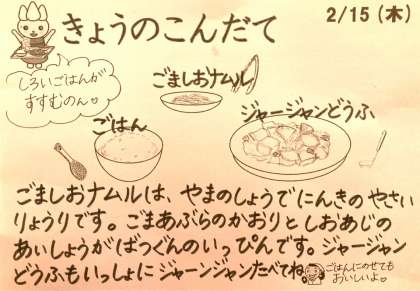 きょうのこんだて
2/15 (木)
しろいごはんが
すすむのん。
ごましおナムル
ごはん
ジャージャンどうふ
ごましおナムルは、やまのしょうでにんきのやさい
りょうりです。ごまあぶらのかおりとしおあじの
あいしょうがばつぐんのいっぴんです。ジャージャン
どうふもいっしょにジャーンジャンたべてね。
ごはんにのせても
おいしいよ。